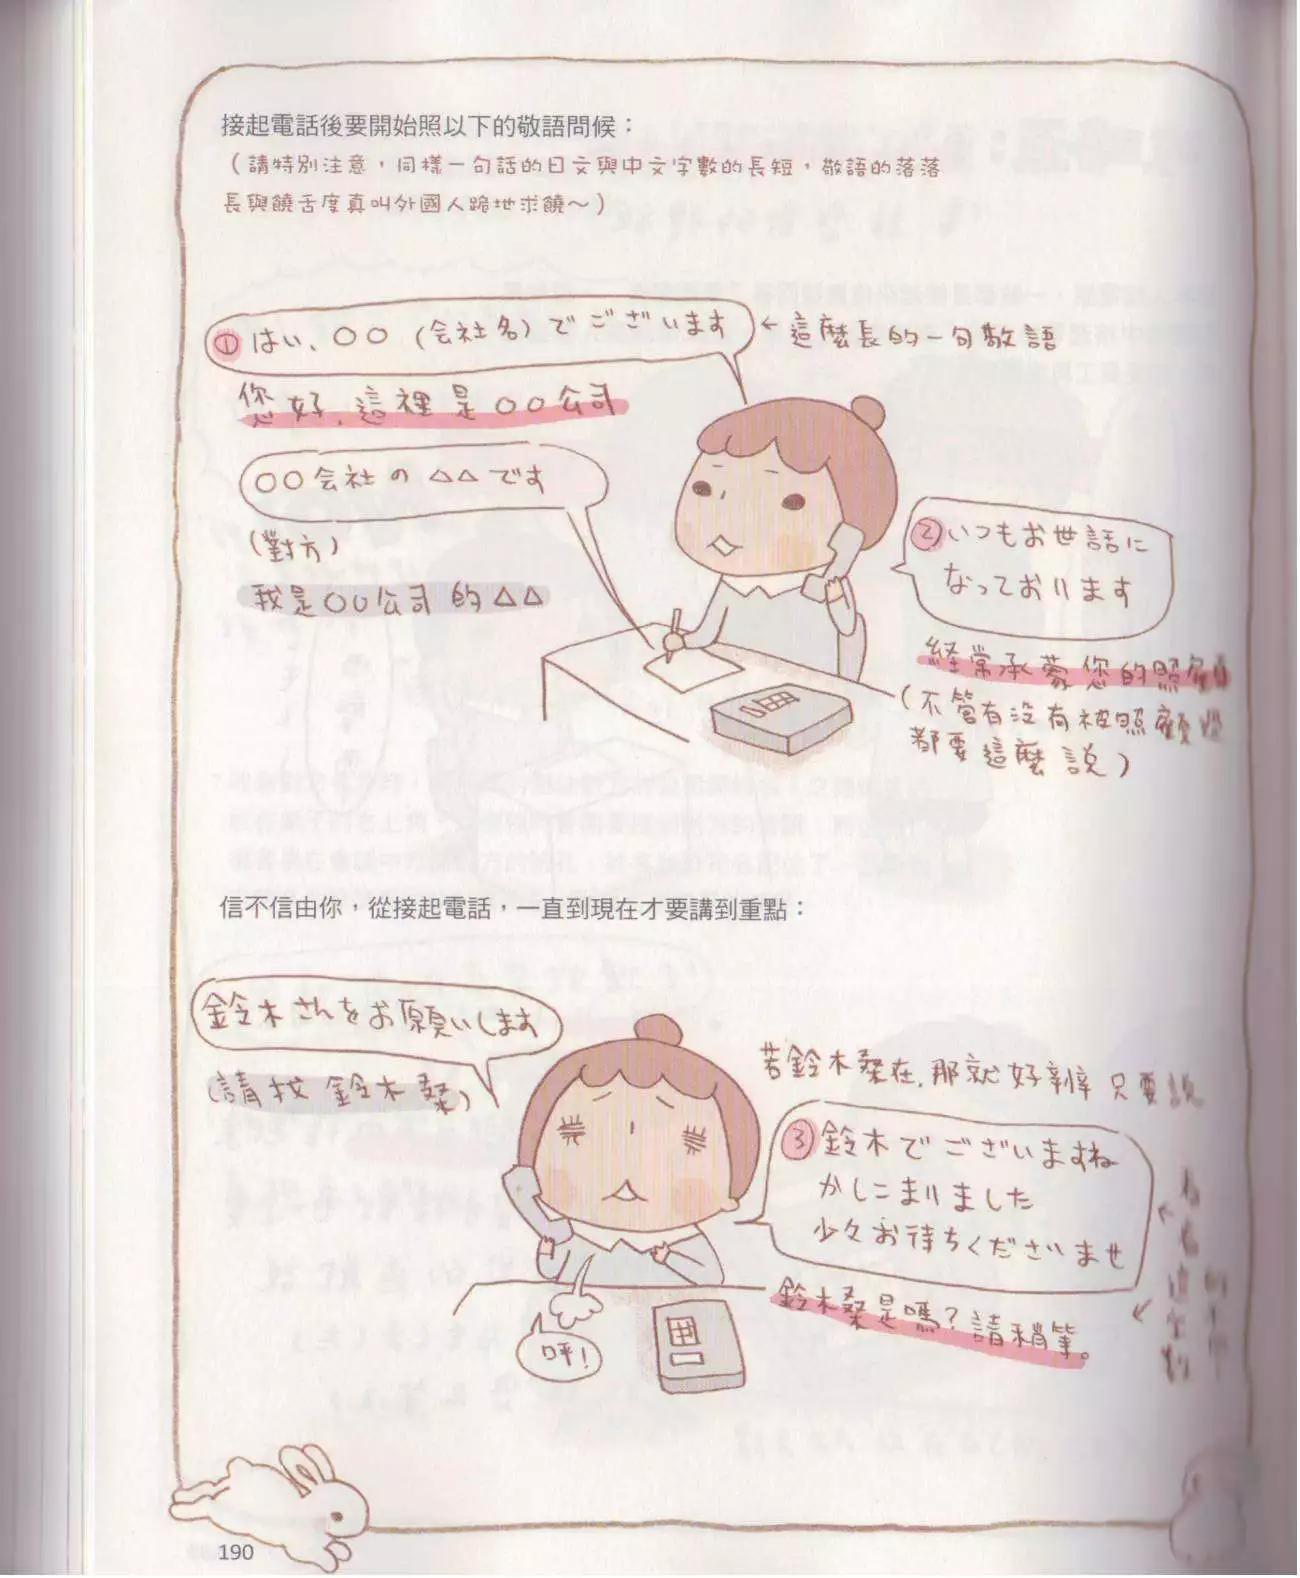 接起電話後要開始照以下的敬語問候：
（請特別注意，同樣一句話的日文與中文字數的長短，敬語的落落
長與饒舌度真叫外國人跪地求饒～）
①はい、○○（会社名）でございます
←這麼長的一句敬語
您好，這裡是○○公司
○○会社の△△です
（對方）
我是○○公司的△△
②いつもお世話に
なっております
経常承蒙您的照顧
（不管有沒有被照顧過
都要這麼說）
信不信由你，從接起電話，一直到現在才要講到重點：
鈴木さんをお願いします
（請找鈴木桑）
若鈴木桑在，那就好辦 只要說
③鈴木でございますね
かしこまりました
少々お待ちくださいませ
鈴木桑是嗎？請稍等。
呼！
190